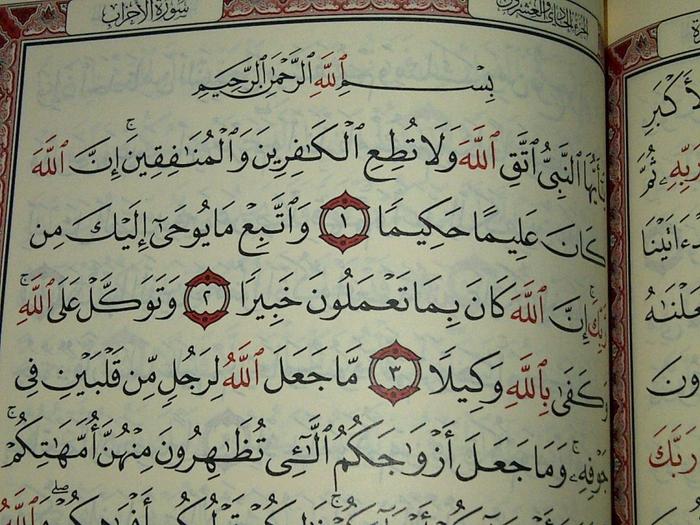 سُورَةُ الأَحْزَابِ
الجزء الحادي والعشرون
بِسْمِ ٱللَّهِ ٱلرَّحْمَٰنِ ٱلرَّحِيمِ
ٱلنَّبِىُّ ٱتَّقِ ٱللَّهَ وَلَا تُطِعِ ٱلْكَٰفِرِينَ وَٱلْمُنَٰفِقِينَ ۚ إِنَّ ٱللَّهَ
كَانَ عَلِيمًا حَكِيمًا ١ وَٱتَّبِعْ مَا يُوحَىٰٓ إِلَيْكَ مِن
رَّبِّكَ ۚ إِنَّ ٱللَّهَ كَانَ بِمَا تَعْمَلُونَ خَبِيرًا ٢ وَتَوَكَّلْ عَلَى ٱللَّهِ ۚ
وَكَفَىٰ بِٱللَّهِ وَكِيلًا ٣ مَّا جَعَلَ ٱللَّهُ لِرَجُلٍ مِّن قَلْبَيْنِ فِى
جَوْفِهِۦ ۚ وَمَا جَعَلَ أَزْوَٰجَكُمُ ٱلَّٰٓـِٔى تُظَٰهِرُونَ مِنْهُنَّ أُمَّهَٰتِكُمْ ۚ
أَكْبَرِ
رَبِّهِۦ ثُمَّ
رَبَّكَ